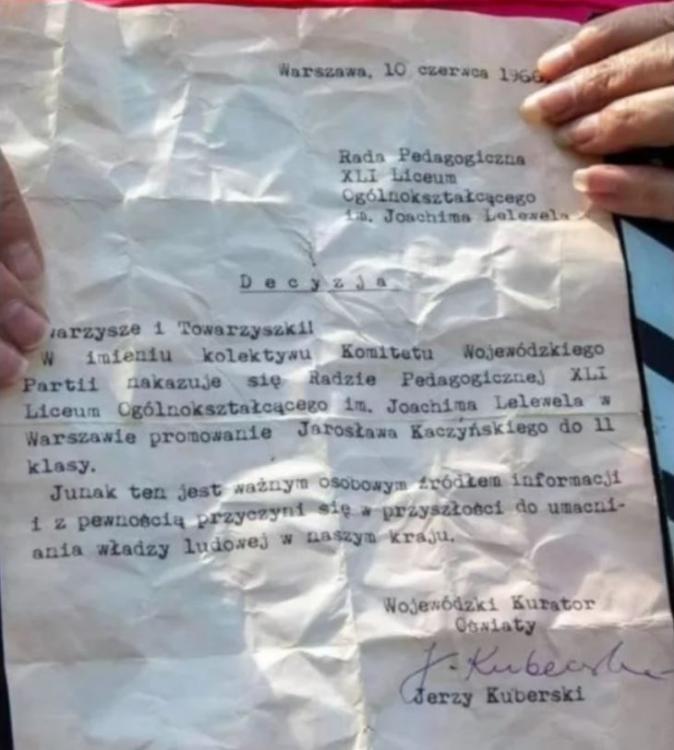 Warszawa, 10 czerwca 1966
Rada Pedagogiczna
XLI Liceum
Ogólnokształcącego
im. Joachima Lelewela
Decyzja
warzysze i Towarzyszki!
W imieniu kolektywu Komitetu Wojewódzkiego
Partii nakazuje się Radzie Pedagogicznej XLI
Liceum Ogólnokształcącego im. Joachima Lelewela w
Warszawie promowanie Jarosława Kaczyńskiego do 11
klasy.
Junak ten jest ważnym osobowym źródłem informacji
i z pewnością przyczyni się w przyszłości do umacni-
ania władzy ludowej w naszym kraju.
Wojewódzki Kurator
Oświaty
J. Kuberski
Jerzy Kuberski